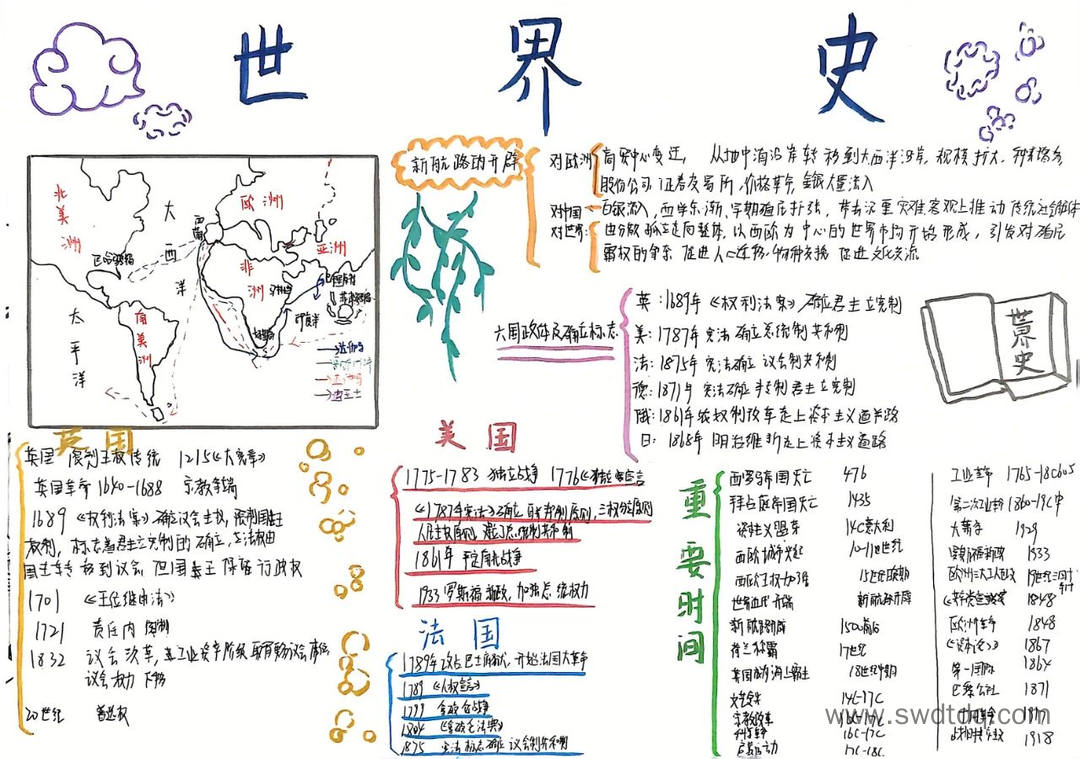 世界史
北美洲
大西洋
欧洲
亚洲
非洲
南美洲
太平洋
西
巴哈马群岛
好望角
印度洋
达伽马
麦哲伦
新航路的开辟
对欧洲
商贸中心变迁, 从地中海沿岸转移到大西洋沿岸, 规模扩大, 种类增多
股份公司, 证券交易所, 价格革命, 金银大量流入
对中国
白银流入, 西学东渐, 早期殖民扩张, 带来沉重灾难客观上推动传统社会解体
对世界:
由分散孤立走向整体, 以西欧为中心的世界市场开始形成, 引发对殖民
霸权的争夺 促进人口迁移、物种交换 促进文化交流
六国政体及确立标志
英: 1689年《权利法案》确立君主立宪制
美: 1787年宪法确立总统制共和制
法: 1875年宪法确立议会制共和制
德: 1871年宪法确立君主立宪制
俄: 1861年农权制改革走上资本主义道路
日: 1868年明治维新走上资本主义道路
世界史
英国
英国 限制王权传统 1215《大宪章》
英国革命 1640-1688 宗教
1689《权利法案》确议会主权, 限制国王
权利, 标志着君主立宪制的确立, 立法权由
国王手中移到议会 但国王保留行政权
1701 《王位继承法》
1721 责任内阁制
1832 议会改革,
议会权力下移
20世纪 普选权
美国
1775-1783 独立战争 1776《独立宣言》
《1787年宪法》确立联邦制原则, 三权分立原则
人民主权原则, 建立总统制共和制
1861年 南北战争
1933 罗斯福新政, 加强总统权力
法国
1789年攻占巴士底狱, 开始法国大革命
1789 《人权宣言》
1799
1804
1875 宪法标志确立议会制共和制
重要时间
西罗马帝国灭亡 476
拜占庭帝国灭亡 1435
资本主义萌芽 14C意大利
西欧城市兴起 10-11世纪
西欧王权加强 15世纪晚期
世界近代开端 新航路开辟
新航路开辟 1500前后
荷兰称霸 17世纪
英国成为海上霸主 18世纪中期
文艺复兴 14C-17C
宗教改革 16C-17C
科学革命 16C-17C
启蒙运动 17C-18C
工业革命 1765-18C60S
第二次工业革命 1860-19C中
大萧条 1929
罗斯福新政 1933
欧洲三大工人运动 19世纪三四十年代
《共产党宣言》 1848
欧洲革命 1848
《资本论》 1867
第一国际 1864
巴黎公社 1871
十月革命 1917
1918
www.swdtdq.com